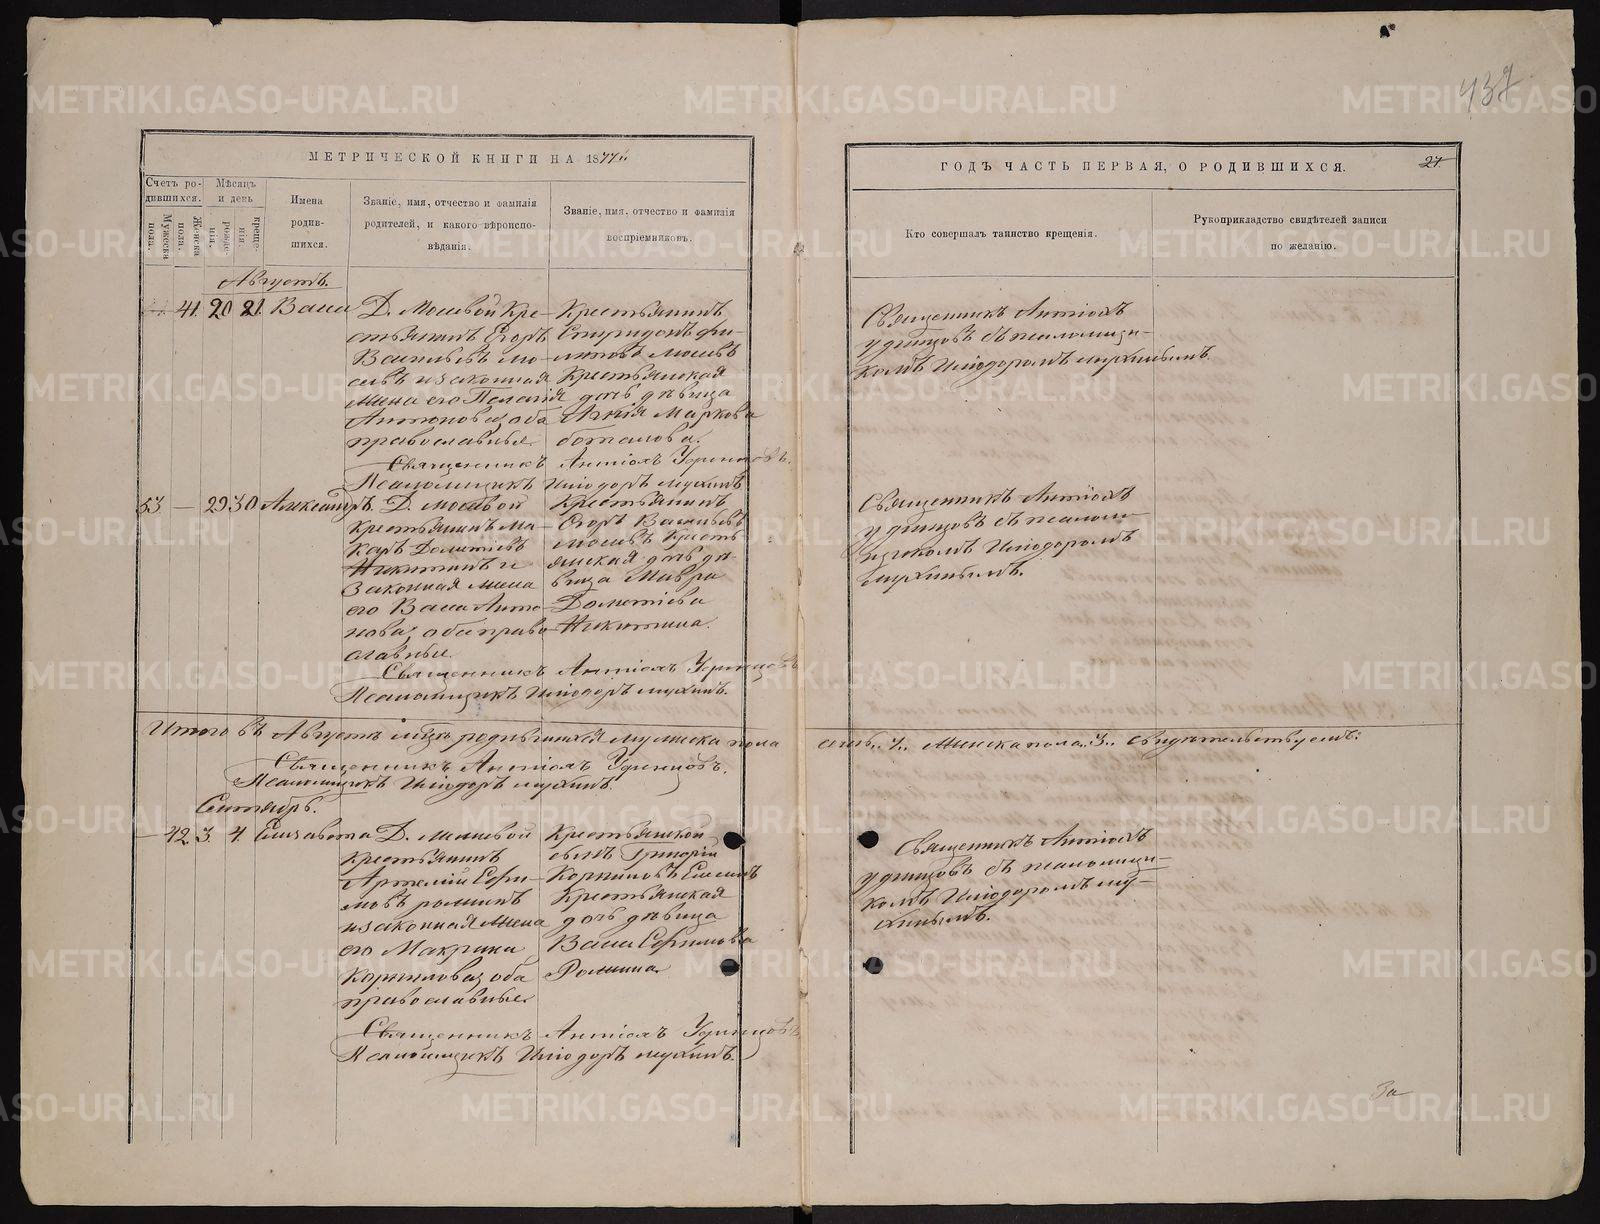 437
МЕТРИЧЕСКОЙ КНИГИ НА 1877й
Счетъ родившихся.
Мужеска пола.
Женска пола.
Мѣсяцъ и день
рожденія.
крещенія.
Имена родившихся.
Званіе, имя, отчество и фамилія
родителей, и какого вѣроиспо-
вѣданія.
Званіе, имя, отчество и фамилія
воспріемниковъ.
ГОДЪ ЧАСТЬ ПЕРВАЯ, О РОДИВШИХСЯ.
27
Кто совершалъ таинство крещенія.
Рукоприкладство свидѣтелей записи
по желанію.
Августъ.
41 20 21 Васса
Д. Мосевой Кре-
стьянинъ Егоръ
Васильевъ Мо-
севъ и законная
жена его Пелагія
Антонова, оба
православные.
Крестьянинъ
Спиридонъ Фи-
липовъ Мосевъ
Крестьянская
дочь дѣвица
Агнія Маркова
Боталова.
Священникъ Антіохъ
Удинцовъ съ псаломщи-
комъ Иліодоромъ Мухинымъ.
Священникъ Антіохъ Удинцовъ.
Псаломщикъ Иліодоръ Мухинъ
53 — 29 30 Александръ.
Д. Мосевой
Крестьянинъ Ма-
каръ Дометіевъ
Никитинъ и
законная жена
его Васса Анто-
нова, оба право-
славные.
Крестьянинъ
Егоръ Васильевъ
Мосевъ Кресть-
янская дочь дѣ-
вица Мавра
Дометіева
Никитина.
Священникъ Антіохъ
Удинцовъ съ псалом-
щикомъ Иліодоромъ
Мухинымъ.
Священникъ Антіохъ Удинцовъ
Псаломщикъ Иліодоръ Мухинъ.
Итого въ Августѣ м-цѣ родившихся мужеска пола
семь „7„ женска пола „3„ свидѣтельствуемъ:
Священникъ Антіохъ Удинцовъ.
Псаломщикъ Иліодоръ Мухинъ.
Сентябрь.
— 42. 3. 4. Елизавета
Д. Мосевой
Крестьянинъ
Артемій Ефи-
мовъ Роминъ
и законная жена
его Макрина
Корнилова, оба
православные.
Крестьянской
сынъ Григорій
Корниловъ
Крестьянская
дочь дѣвица
Васса Ефимова
Ромина.
Священникъ Антіохъ
Удинцовъ съ псаломщи-
комъ Иліодоромъ Му-
хинымъ.
Священникъ Антіохъ Удинцовъ
Псаломщикъ Иліодоръ Мухинъ.
За
METRIKI.GASO-URAL.RU